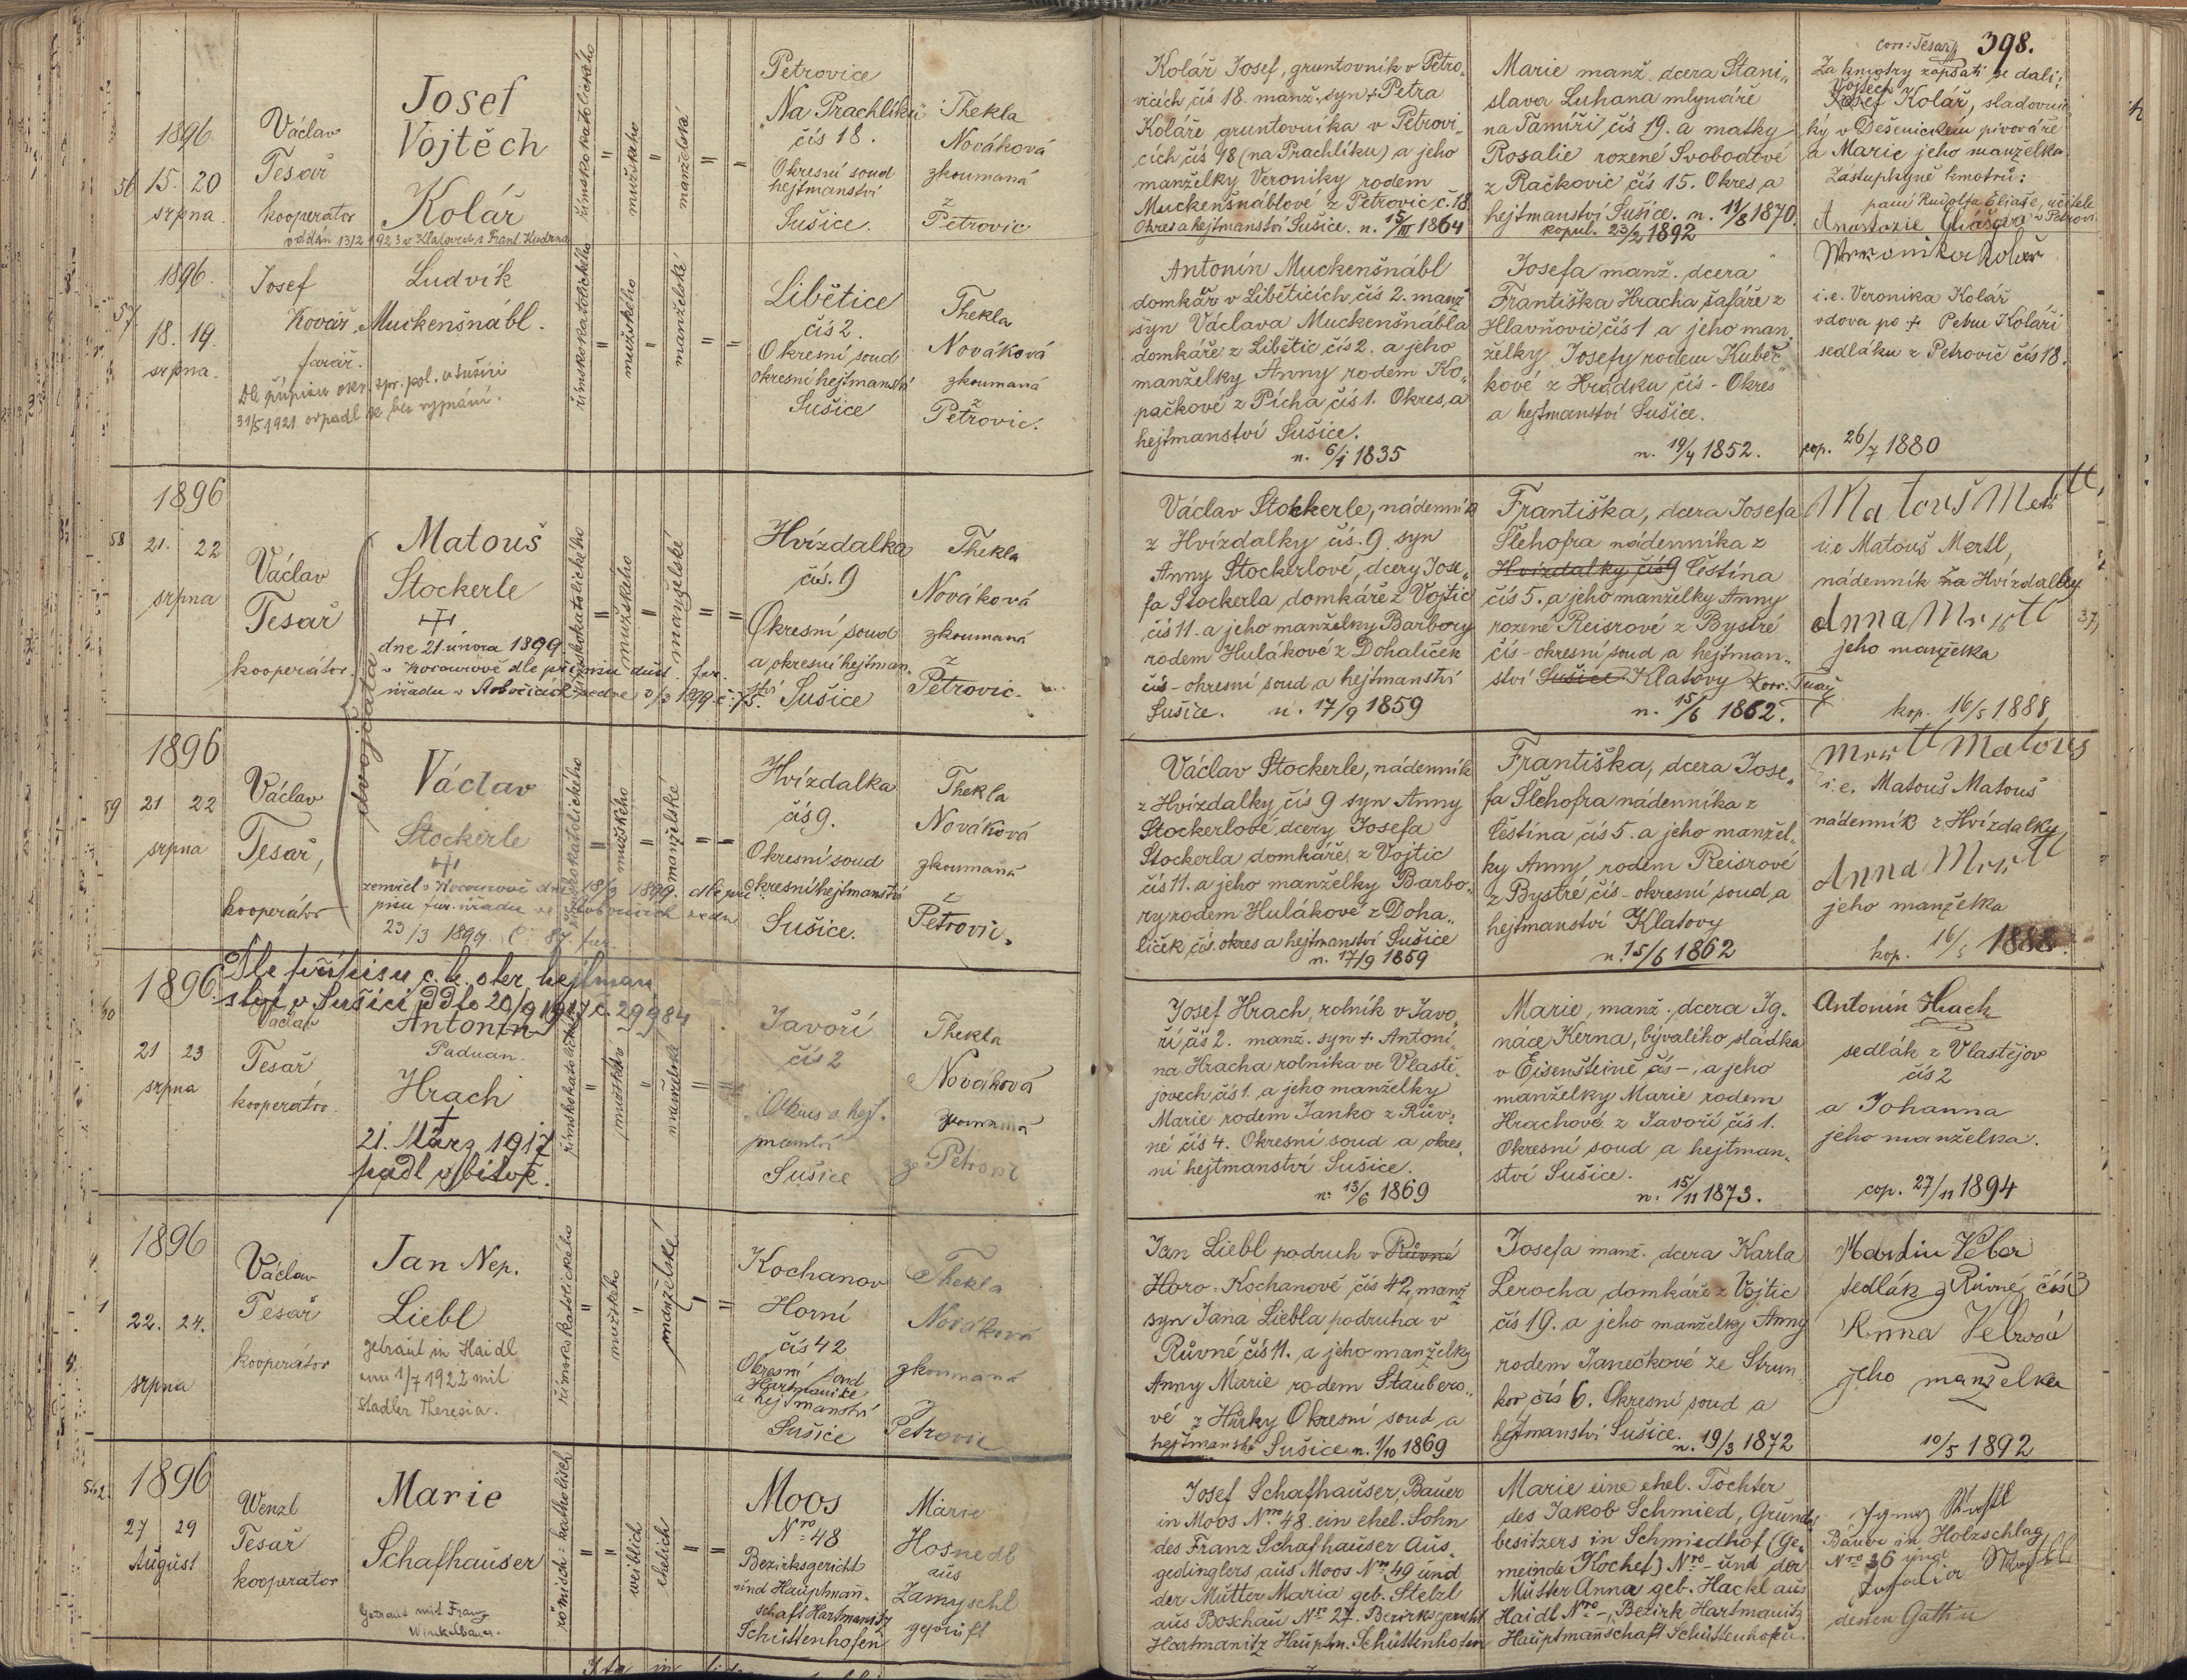 Corr: Tesař 398.
56
1896
15. 20
srpna.
Václav
Tesař
kooperator
Josef
Vojtěch
Kolář
oddán 13/2 1923 v Klatovech s Frant. Kudrna
římskokatolického
mužského
manželské
Petrovice
"Na Prachlíku"
čís 18.
Okresní soud
hejtmanství
Sušice.
Thekla
Nováková
zkoumaná
z
Petrovic
Kolář Josef, gruntovník v Petro„
vicích čís 18. manž. syn + Petra
Koláře gruntovníka v Petrovi„
cích čís 18 (na Prachlíku) a jeho
manželky Veroniky rodem
Muckenšnáblove z Petrovic č. 18.
Okres a hejtmanství Sušice. n. 15/III 1864
Marie manž. dcera Stani„
slava Luhana mlynáře
na Pamíři čís 19. a matky
Rosalie rozené Svobodové
z Račkovic čís 15. Okres a
hejtmanství Sušice. n. 11/8 1870.
kopul. 23/2 1892
Za kmotry zapsati se dali:
Vojtěch
Josef Kolář, sladovni„
ký v Dešenickém pivováře
a Marie jeho manželka.
Zastupkyně kmotrů:
paní Rudolfa Eliáše, učitele
Anastazie Eliášová v Petrovi
57
1896.
18. 19.
srpna.
Josef
Kovář
farář.
Ludvík
Muckenšnábl.
Dle přípisu okr. spr. pol. v Sušici
31/5 1921 odpadl je bez vyznání.
římskokatolického
mužského
manželské
Libětice
čís 2
Okresní soud
okresní hejtmanství
Sušice
Thekla
Nováková
zkoumaná
z
Petrovic.
Antonín Muckenšnábl
domkář v Liběticích čís 2. manž
syn Václava Muckenšnábla
domkáře z Libětic čís 2. a jeho
manželky Anny rodem Ko„
pačkové z Pícha čís 1. Okres, a
hejtmanství Sušice.
n. 6/1 1835
Josefa manž. dcera
Františka Hracha šafáře z
Hlavňovic čís 1 a jeho man„
želky Josefy rodem Kubeč„
kové z Hrádku čís - Okres
a hejtmanství Sušice.
n. 19/4 1852.
Weronika Kolář
i.e. Veronika Kolář
vdova po + Petru Koláři
sedláku z Petrovic čís 18.
cop. 26/7 1880
58
1896
21. 22
srpna
Václav
Tesař
kooperátor.
dvojčata
Matouš
Stockerle
dne 21. února 1899
římskokatolického
mužského
manželské
Hvízdalka
čís. 9
Okresní soud
a okresní hejtman„
ství Sušice
Thekla
Nováková
zkoumaná
z
Petrovic.
Václav Stockerle, nádenník
z Hvízdalky čís. 9 syn
Anny Stockerlové, dcery Jose„
fa Stockerla domkáře z Vojtic
čís 11. a jeho manželky Barbory
rodem Hulákové z Dohaliček
čís - okresní soud a hejtmanství
Sušice. n. 17/9 1859
Františka, dcera Josefa
Šlehofra nádenníka z
Hvízdalky čís 9 Čestína
čís 5. a jeho manželky Anny
rozené Reisrové z Bystré
čís - okresní soud a hejtman„
ství Sušice Klatovy Korr: Tesař
n. 15/6 1862.
Matouš Mertl,
i.e Matouš Mertl,
nádenník na Hvízdalky
Anna Mertl
jeho manželka
kop. 16/5 1888
59
1896
21 22
srpna
Václav
Tesař,
kooperátor
Václav
Stockerle
zemřel v Kocourově dne 18/3 1899. dle pří„
pisu far. úřadu ve
23/3 1899. Č. 87. far.
římskokatolického
mužského
manželské
Hvízdalka
čís 9.
Okresní soud
okresní hejtmanství
Sušice.
Thekla
Nováková
zkoumaná
z
Petrovic.
Václav Stockerle, nádenník
z Hvízdalky čís 9 syn Anny
Stockerlové, dcery Josefa
Stockerla domkáře z Vojtic
čís 11. a jeho manželky Barbo„
ry rodem Hulákové z Doha„
liček čís. okres a hejtmanství Sušice
n. 17/9 1859
Františka, dcera Jose„
fa Šlehofra nádenníka z
Čestína čís 5. a jeho manžel„
ky Anny rodem Reisrové
z Bystré čís - okresní soud a
hejtmanství Klatovy
n. 15/6 1862
Mertl Matouš
i.e. Matouš Matouš
nádenník z Hvízdalky
Anna Mertl
jeho manželka
kop. 16/5 1888.
60
1896
21 23
srpna
Dle přípisu c. k. okr. hejtman
ství v Sušici ddto 20/9 1917 č. 29984
Václav
Tesař
kooperátor.
Antonín
Paduan.
Hrach
21. März 1917
padl v bitvě.
římskokatolického
mužské
manželské
Javoří
čís 2
Okres a hejt„
manství
Sušice
Thekla
Nováková
zkoumaná
z Petrovic
Josef Hrach, rolník v Javo„
ří čís 2. manž. syn + Antoní„
na Hracha rolníka ve Vlastě„
jovech čís 1. a jeho manželky
Marie rodem Janko z Rův„
né čís 4. Okresní soud a okres„
ní hejtmanství Sušice.
n. 13/6 1869
Marie, manž. dcera Ig„
náce Kerna, bývalého sládka
v Eisenšteině čís -, a jeho
manželky Marie rodem
Hrachové z Javoří čís 1.
Okresní soud a hejtman„
ství Sušice.
n. 15/11 1873.
Antonín Hrach
sedlák z Vlastějov
čís 2
a Johanna
jeho manželka.
cop. 27/11 1894
1896
22. 24.
srpna
Václav
Tesař
kooperátor
Jan Nep.
Liebl
getraut in Haidl
am 1/7 1922 mit
Stadler Theresia.
římskokatolického
mužského
manželské
Kochanov
Horní
čís 42
Okresní soud
Hartmanice
a hejtmanství
Sušice
Thekla
Nováková
zkoumaná
z
Petrovic
Jan Liebl podruh v Růvné
Horo-Kochanově čís 42, manž
syn Jana Liebla podruha v
Růvné čís 11. a jeho manželky
Anny Marie rodem Staubero„
vé z Hůrky Okresní soud a
hejtmanství Sušice n. 1/10 1869
Josefa manž. dcera Karla
Lerocha domkáře z Vojtic
čís 19. a jeho manželky Anny
rodem Janečkové ze Strun„
kov čís 6. Okresní soud a
hejtmanství Sušice. n. 19/3 1872
Martin Veber
sedlák z Růvné čís 3
Anna Vebrová
jeho manželka
10/5 1892
1896
27 29
August
Wenzl
Tesař
kooperator
Marie
Schafhauser
Getraut mit Franz
Winkelbauer.
römisch-katholisch
weiblich
ehelich
Moos
Nro 48
Bezirksgericht
und Hauptmann„
schaft Hartmanitz
Schüttenhofen
Marie
Hosnedl
aus
Zamyschl
geprüft
Josef Schafhauser, Bauer
in Moos Nro 48. ein ehel. Sohn
des Franz Schafhauser Aus„
gedinglers aus Moos Nro 49 und
der Mutter Maria geb. Stelzl
aus Boschau Nro 27. Bezirksgericht
Hartmanitz Hauptm. Schüttenhofen
Marie eine ehel. Tochter
des Jakob Schmied, Grund„
besitzers in Schmiedhof (Ge„
meinde Kochet) Nro - und der
Mutter Anna geb. Hackl aus
Haidl Nro -, Bezirk Hartmanitz
Hauptmannschaft Schüttenhofen.
Bauer in Holzschlag
Nro 36 und
dessen Gattin